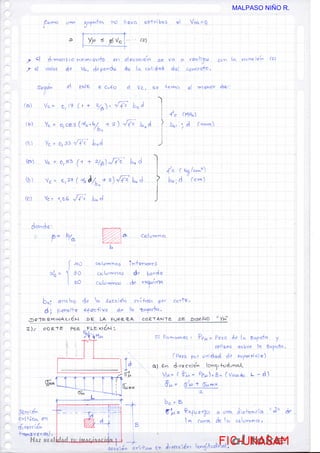 MALPASO NIÑO R.
Como una zapatas no lleva estribos el Vs = 0
Vu ≤ Ø Vc ... (2)
el dimensionamiento en elevación se va a realizar con la ecuación (2)
el valor de Vc, depende de la calidad del concreto.
Según el E060 el Vc, se toma el menor de:
(a) Vc = 0,17 (1 + 2/β) √f'c bo d
(b) Vc = 0,083 (αs d/bo + 2) √f'c bo d
(c) Vc = 0,33 √f'c bo d
f'c (MPa)
bo; d (mm)
(a) Vc = 0,53 (1 + 2/β) √f'c bo d
(b) Vc = 0,27 (αs d/bo + 2) √f'c bo d
(c) Vc = 1,06 √f'c bo d
f'c (kg/cm²)
bo; d (cm)
donde:
β = b/a
a
b
columna
αs = 40 columnas interiores
30 columnas de borde
20 columnas de esquina
bo: ancho de la sección crítica por corte.
d: peralte efectivo de la zapata.
DETERMINACIÓN DE LA FUERZA CORTANTE DE DISEÑO "Vu"
2)/ CORTE POR FLEXIÓN:
Si llamamos:
(Peso por unidad de superficie)
a) En dirección longitudinal
bo = B
la cara de la columna.
Sección
crítica en
dirección
transversal.
B
Haz realidad tu imaginación !
sección crítica en dirección longitudinal
FIC-UNASAM